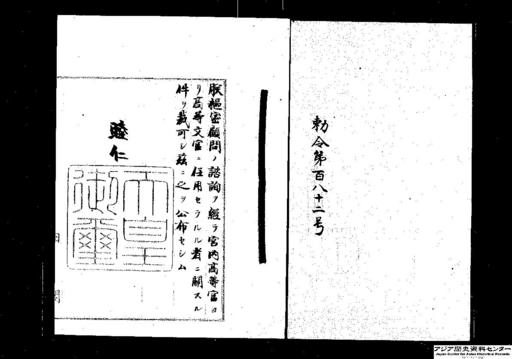 勅令第百八十二号
朕樞密顧問ノ諮詢ヲ經テ宮内高等官ヨ
リ高等文官ニ任用セラルル者ニ關スル
件ヲ裁可シ茲ニ之ヲ公布セシム
睦仁
天皇
御璽
アジア歴史資料センター
Japan Center for Asian Historical Records